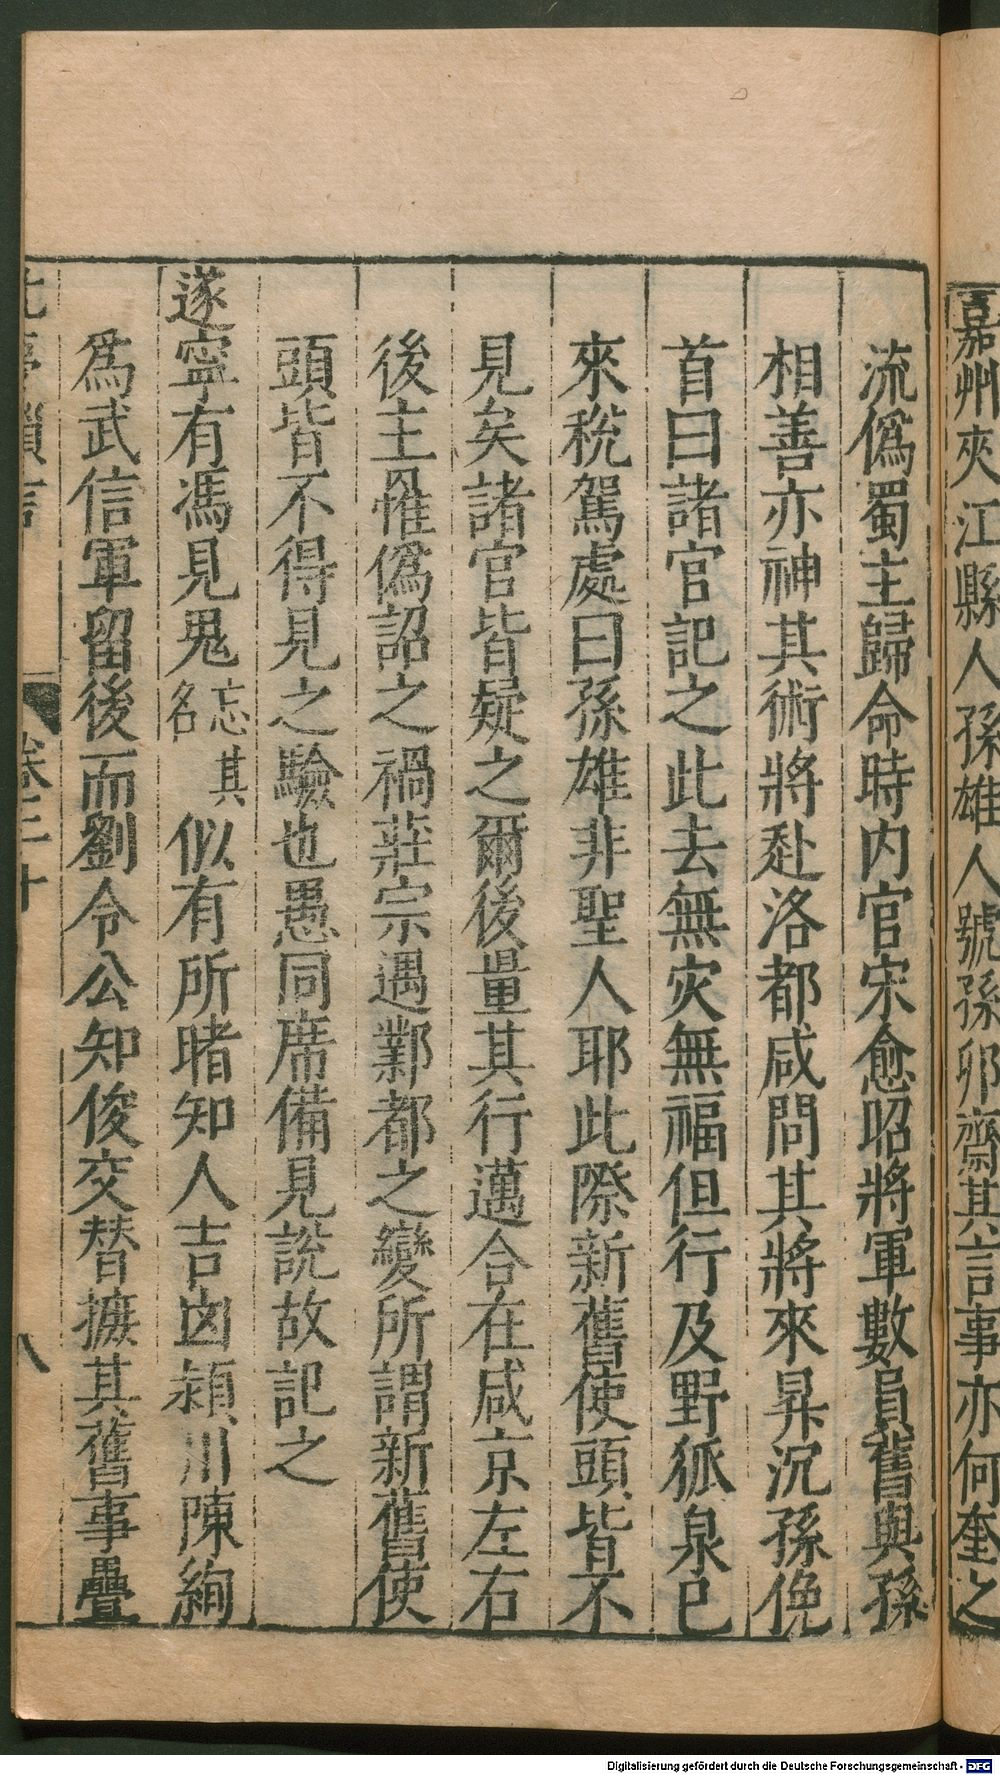 嘉州夾江縣人孫雄人號孫卯齋其言事亦何奎之
流僞蜀主歸命時内官宋愈昭將軍數員舊與孫
相善亦神其術將赴洛都咸問其將來昇沉孫俛
首曰諸官記之此去無灾無福但行及野狐泉已
來稅駕處曰孫雄非聖人耶此際新舊使頭皆不
見矣諸官皆疑之爾後量其行邁合在咸京左右
後主罹僞詔之禍莊宗遇鄴都之變所謂新舊使
頭皆不得見之驗也愚同席備見說故記之
遂寧有馮見鬼忘其名似有所睹知人吉凶潁川陳絢
爲武信軍留後而劉令公知俊交替摭其舊事疊
北夢瑣言 卷二十 八
Digitalisierung gefördert durch die Deutsche Forschungsgemeinschaft - DFG